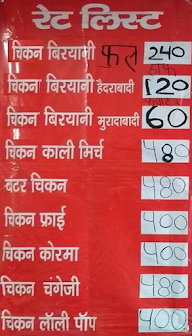 रेट लिस्ट
चिकन बिरयानी फुल 240
चिकन बिरयानी हैदराबादी हाफ 120
चिकन बिरयानी मुरादाबादी 60
चिकन काली मिर्च 480
बटर चिकन 480
चिकन फ्राई 400
चिकन कोरमा 400
चिकन चंगेजी 480
चिकन लॉली पॉप 400